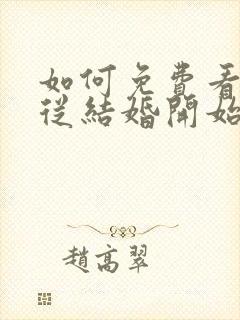 如何免費看
從結婚開始
趙高翠